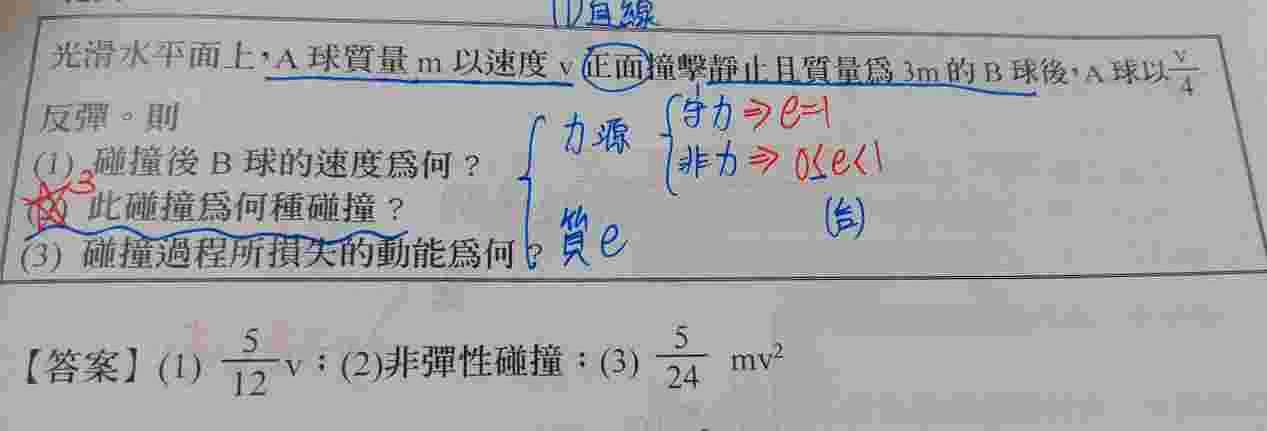 (1)直線
光滑水平面上,A 球質量 m 以速度 v 正面撞擊靜止且質量為 3m 的 B 球後,A 球以 v/4
反彈。則
(1) 碰撞後 B 球的速度為何?
(2) 此碰撞為何種碰撞?
3
(3) 碰撞過程所損失的動能為何?
力源
守力 ⇒ e=1
非力 ⇒ 0≤e<1
(合)
質 e
【答案】(1) 5/12 v;(2)非彈性碰撞;(3) 5/24 mv²